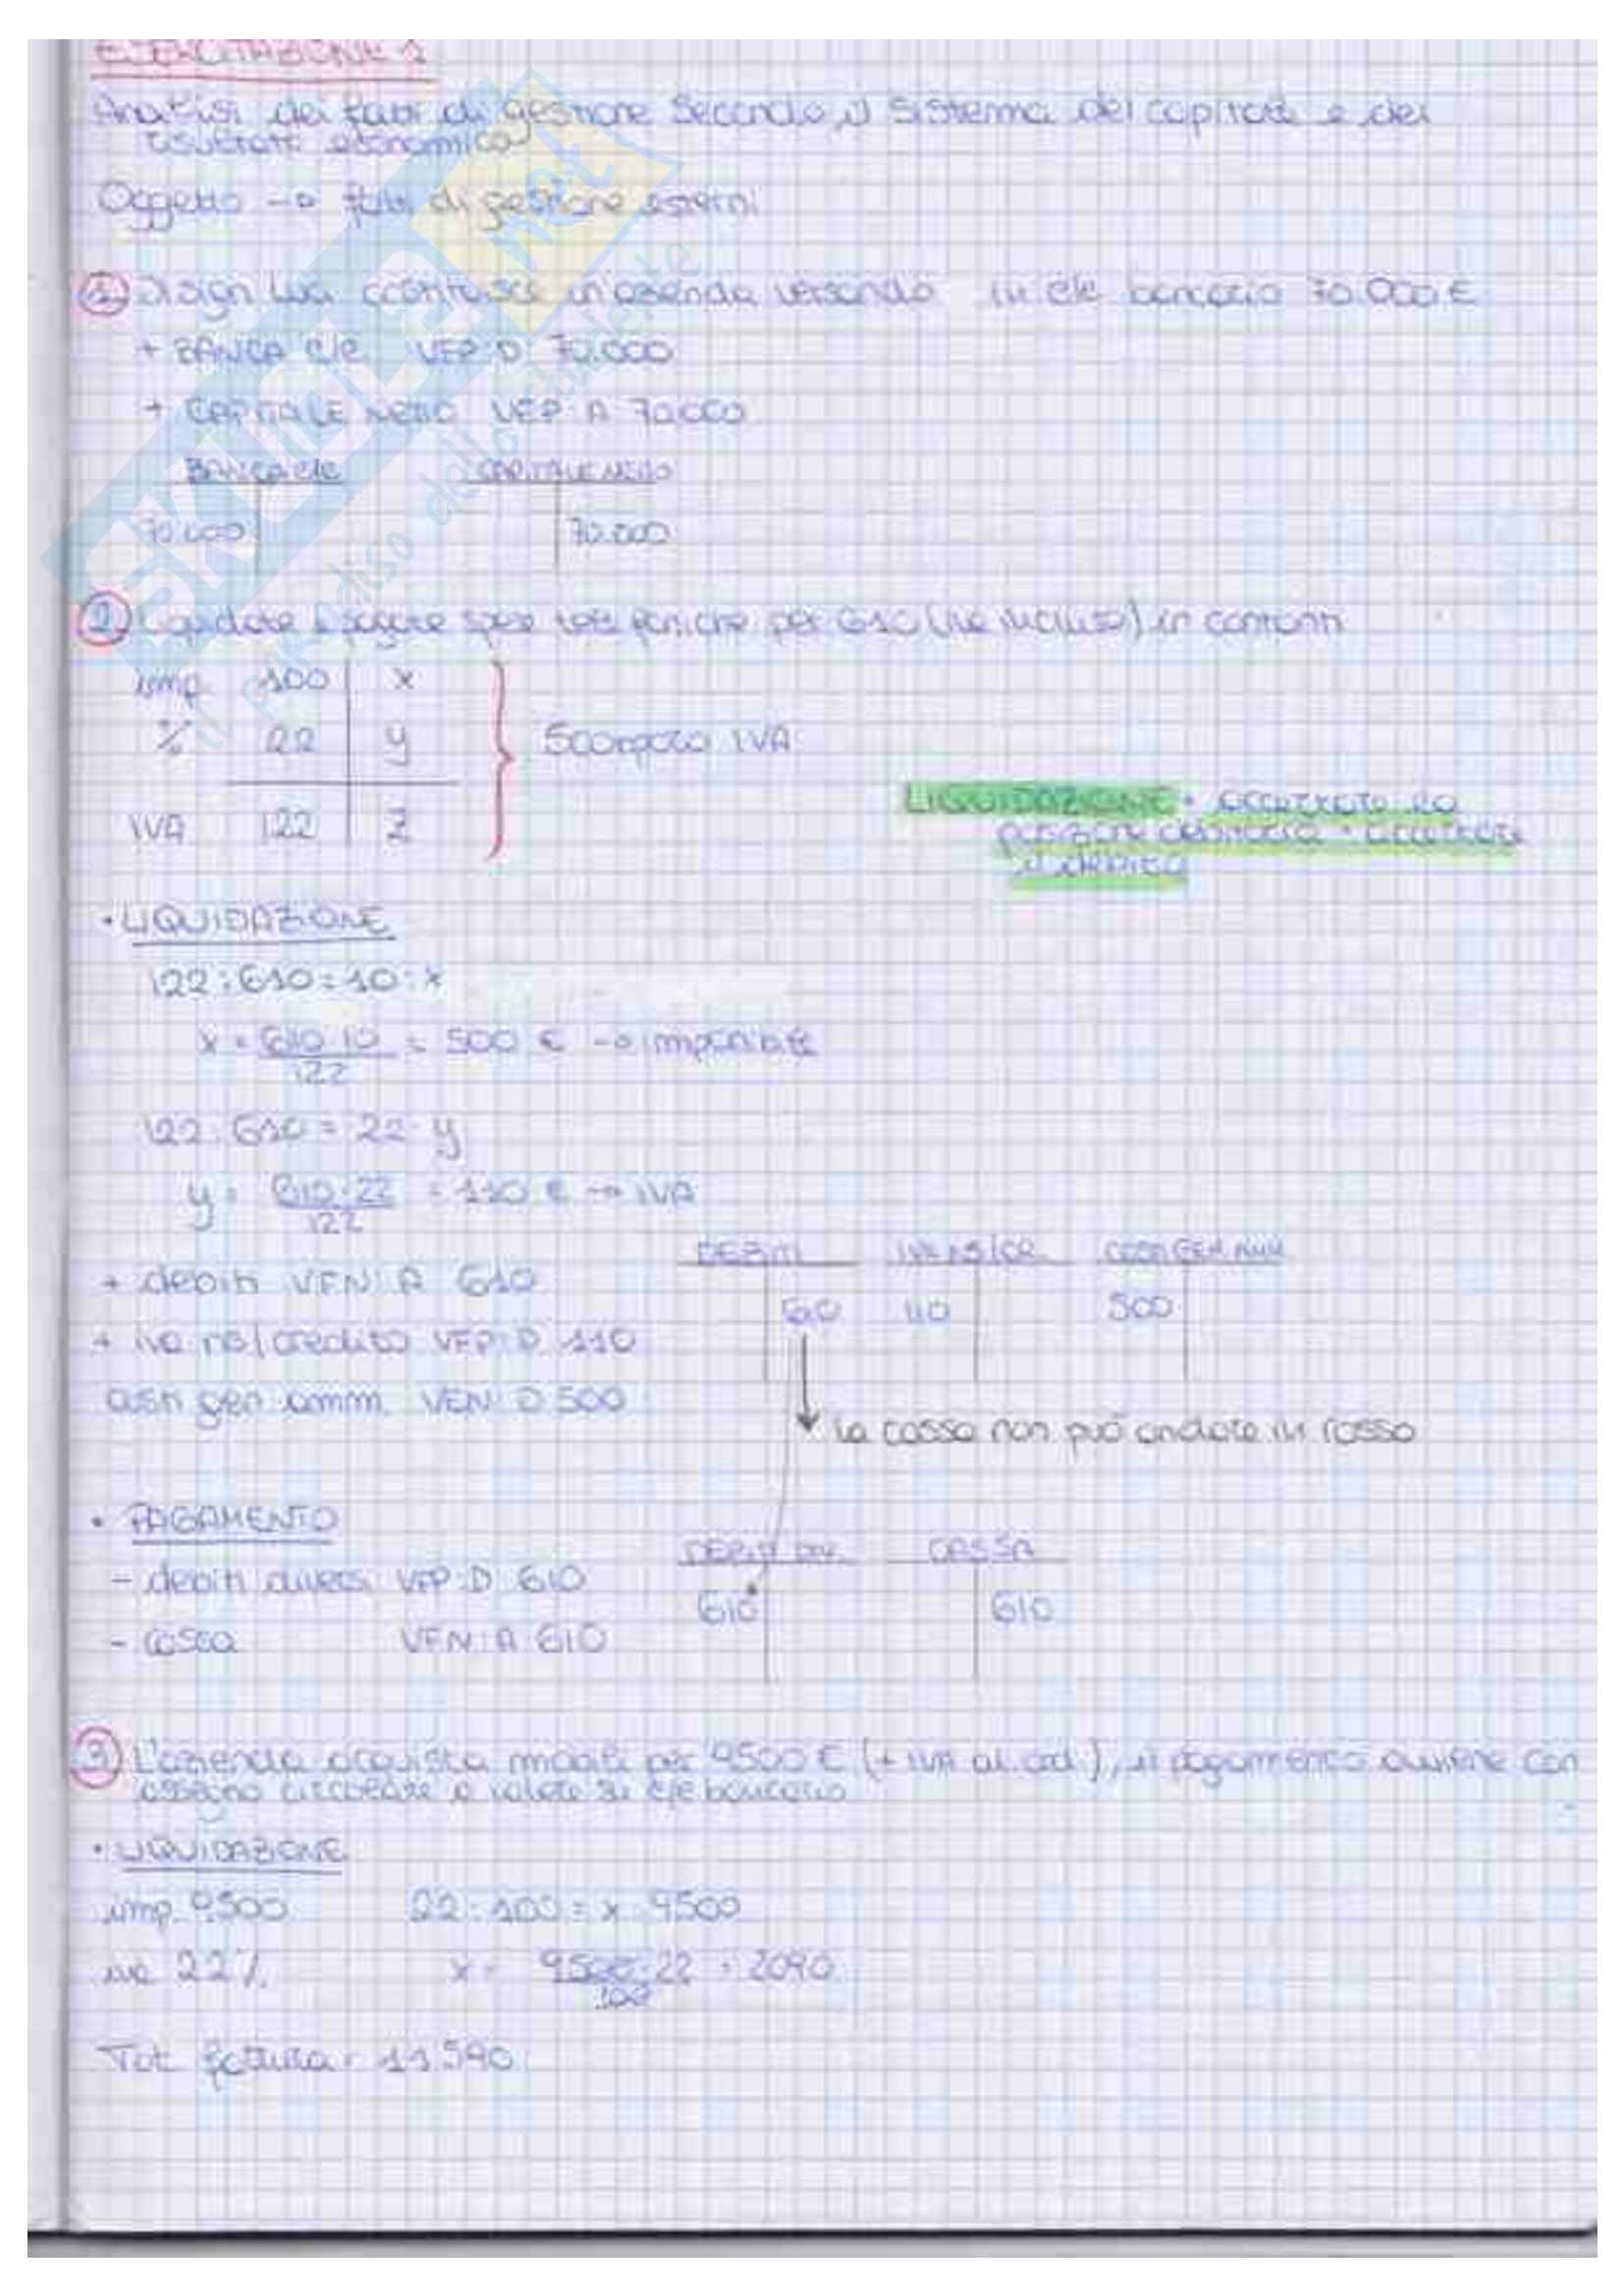 ESERCITAZIONE 1
Analisi dei fatti di gestione secondo il sistema del capitale e del
risultato economico
Oggetto → fatti di gestione esterni
① Design costituisce un'azienda versando in c/c bancario 70.000 €
+ BANCA c/c VFP: D 70.000
+ CAPITALE NETTO VEP: A 70.000
BANCA c/c CAPITALE NETTO
70.000 70.000
② Liquidate e pagate spese telefoniche per 610 (iva inclusa) in contanti
imp 100 x
% 22 y
Scorporo IVA
IVA 122 z
LIQUIDAZIONE = accertate la
posizione debitoria = accertate
il debito
• LIQUIDAZIONE
122:610=10:x
x = 610·10 = 500 € → imponibile
122
122:610 = 22:y
y = 610·22 = 110 € → IVA
122
DEBITI IVA NS/CR COSTI GEN. AMM
+ debiti VFN: A 610
610 110 500
+ iva ns/credito VFP: D 110
costi gen amm. VEN: D 500
la cassa non può andare in rosso
• PAGAMENTO
DEBITI DIV. CASSA
- debiti diversi VFP: D 610
610 610
- cassa VFN: A 610
③ L'azienda acquista mobili per 9500 € (+ IVA al. ord.), il pagamento avviene con
assegno circolare a valere su c/c bancario
• LIQUIDAZIONE
imp. 9500 22:100 = x:9500
iva 22% x = 9500·22 = 2090
100
Tot fattura = 11.590
SKUOLA.net
il paradiso dello studente